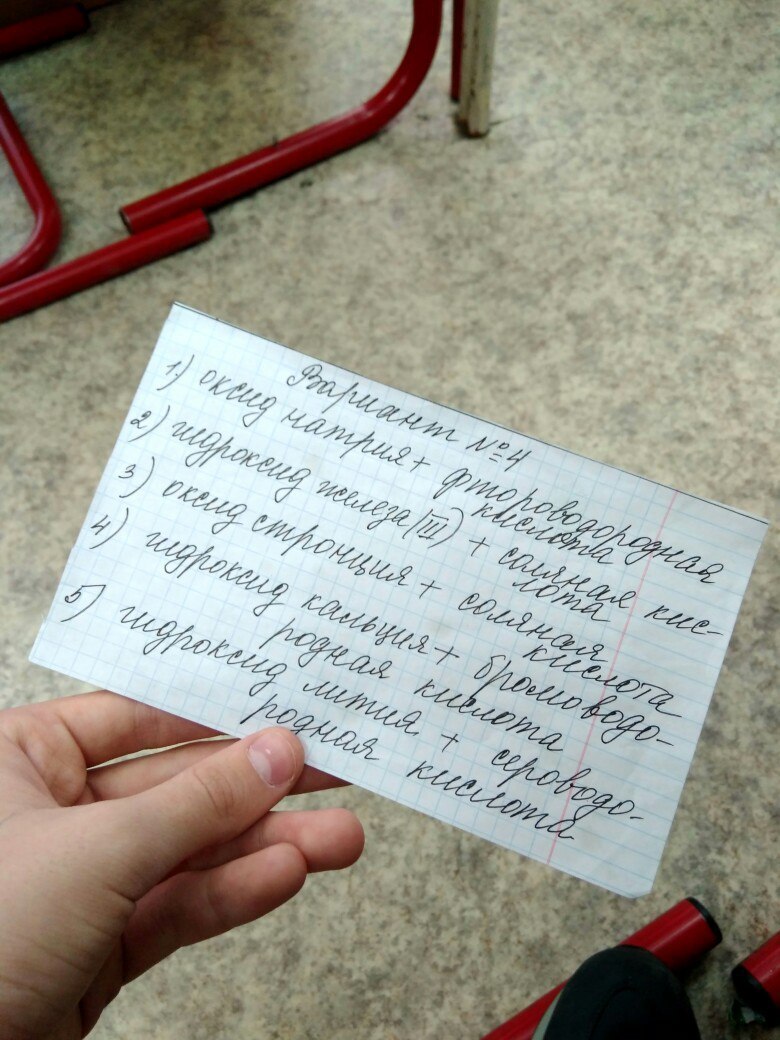 Вариант №4
1) оксид натрия + фтороводородная
кислота
2) гидроксид железа (III) + соляная кис-
лота
3) оксид стронция + соляная
кислота
4) гидроксид кальция + бромоводо-
родная кислота
5) гидроксид лития + сероводо-
родная кислота